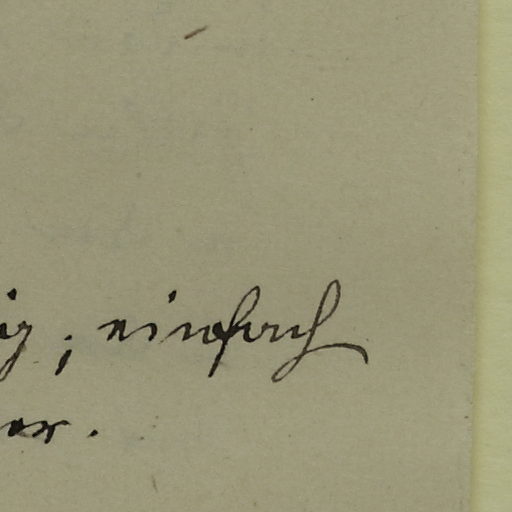 ig; einfach
er.